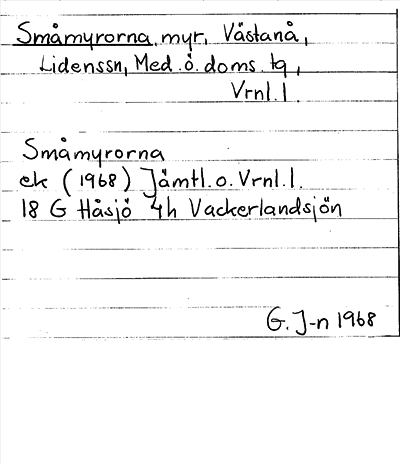 Småmyrorna, myr, Västanå,
Lidenssn, Med. ö. doms. tg,
Vrnl. l.
Småmyrorna
ek (1968) Jämtl. o. Vrnl. l.
18 G Håsjö 4h Vackerlandsjön
G. J-n 1968